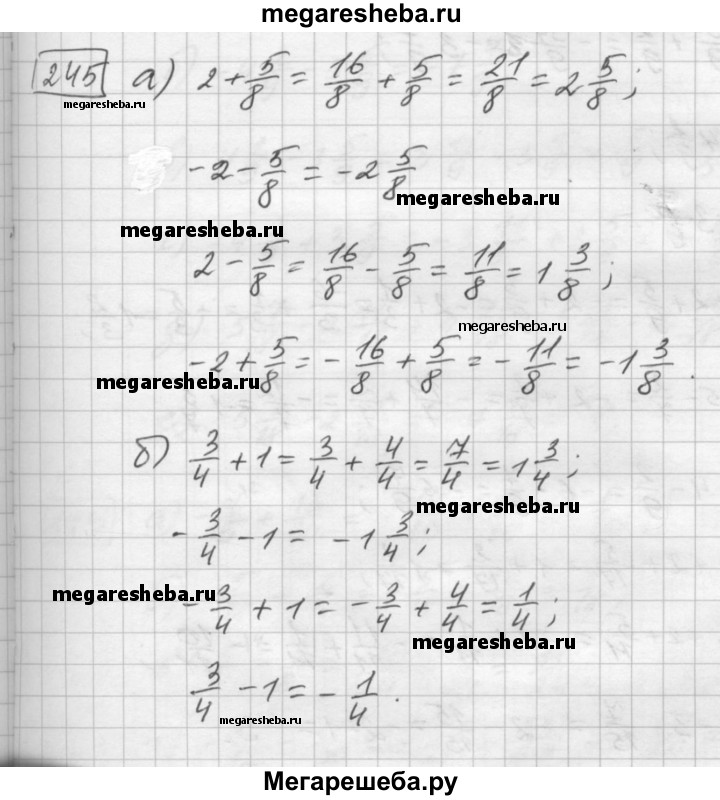 megaresheba.ru
245 а) 2 + 5/8 = 16/8 + 5/8 = 21/8 = 2 5/8;
megaresheba.ru
-2 - 5/8 = -2 5/8
megaresheba.ru
megaresheba.ru
2 - 5/8 = 16/8 - 5/8 = 11/8 = 1 3/8;
megaresheba.ru
-2 + 5/8 = - 16/8 + 5/8 = - 11/8 = -1 3/8.
megaresheba.ru
б) 3/4 + 1 = 3/4 + 4/4 = 7/4 = 1 3/4;
megaresheba.ru
- 3/4 - 1 = -1 3/4;
megaresheba.ru
- 3/4 + 1 = - 3/4 + 4/4 = 1/4;
megaresheba.ru
3/4 - 1 = - 1/4.
megaresheba.ru
Мегарешеба.ру